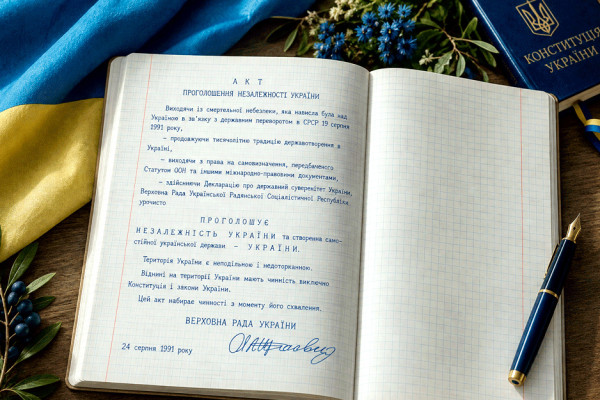 А К Т
ПРОГОЛОШЕННЯ НЕЗАЛЕЖНОСТІ УКРАЇНИ
Виходячи із смертельної небезпеки, яка нависла була над
Україною в зв'язку з державним переворотом в СРСР 19 серпня
1991 року,
– продовжуючи тисячолітню традицію державотворення в
Україні,
– виходячи з права на самовизначення, передбаченого
Статутом ООН та іншими міжнародно-правовими документами,
– здійснюючи Декларацію про державний суверенітет України,
Верховна Рада Української Радянської Соціалістичної Республіки
урочисто
П Р О Г О Л О Ш У Є
Н Е З А Л Е Ж Н І С Т Ь У К Р А Ї Н И та створення само-
стійної української держави – У К Р А Ї Н И.
Територія України є неподільною і недоторканною.
Віднині на території України мають чинність виключно
Конституція і закони України.
Цей акт набирає чинності з моменту його схвалення.
ВЕРХОВНА РАДА УКРАЇНИ
24 серпня 1991 року
КОНСТИТУЦІЯ
УКРАЇНИ